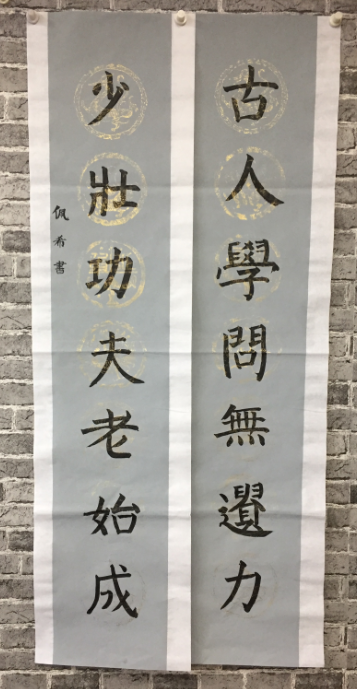 古人學問無遺力
少壯功夫老始成
佩希書